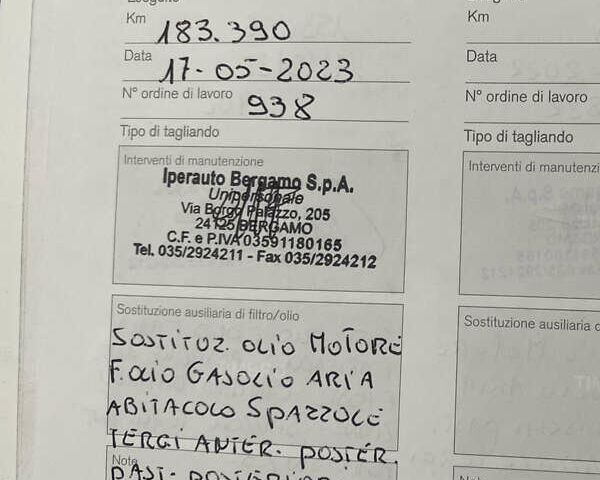 Km
183.390
Data
17-05-2023
N° ordine di lavoro
938
Tipo di tagliando
Interventi di manutenzione
Iperauto Bergamo S.p.A.
Unipersonale
Via Borgo Palazzo, 205
24125 BERGAMO
C.F. e P.IVA 03591180165
Tel. 035/2924211 - Fax 035/2924212
Sostituzione ausiliaria di filtro/olio
SOSTITUZ. OLIO MOTORE
F. OLIO GASOLIO ARIA
ABITACOLO SPAZZOLE
TERGI ANTER. POSTER.
Note
PAST. POSTERIOR
Km
Data
N° ordine di lavoro
Tipo di tagliando
Interventi di manutenzi
Sostituzione ausiliaria d